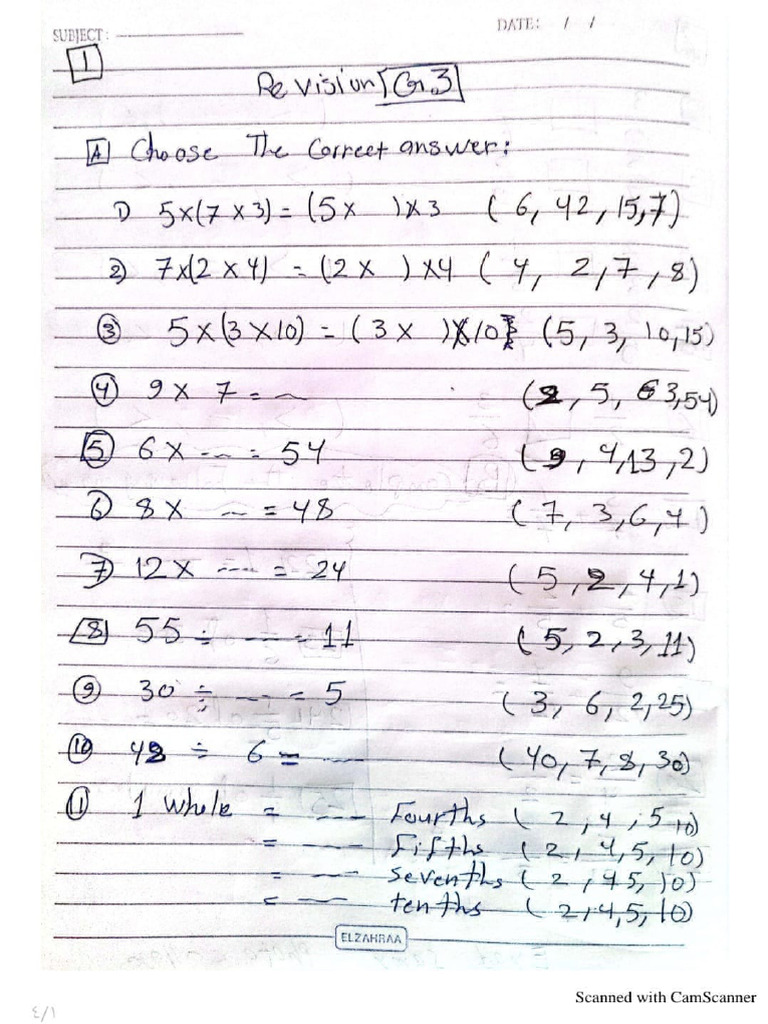 SUBJECT:
DATE: / /
1
Revision Gr.3
A Choose The Correct answer:
1) 5x(7 x 3) = (5 x   ) x 3 ( 6, 42, 15, 7)
2) 7x(2 x 4) = (2 x   ) x4 ( 4, 2, 7, 8)
3 5 x (3 x 10) = ( 3 x   ) x 10 (5, 3, 10, 15)
4 9 x 7 = (2, 5, 63, 54)
5 6 x --- = 54 (9, 4, 13, 2)
6 8 x --- = 48 (7, 3, 6, 4)
7 12 x --- = 24 (5, 2, 4, 1)
8 55 ÷ --- = 11 (5, 2, 3, 11)
9 30 ÷ --- = 5 (3, 6, 2, 25)
10 ÷ 6 = ---- (40, 7, 8, 30)
11 1 whole = --- Fourths ( 2, 4, 5 10)
= --- Fifths (2, 4, 5, 10)
= --- sevenths (2, 45, 10)
= --- tenths (2, 4, 5, 10)
ELZAHRAA
Scanned with CamScanner
١/٤